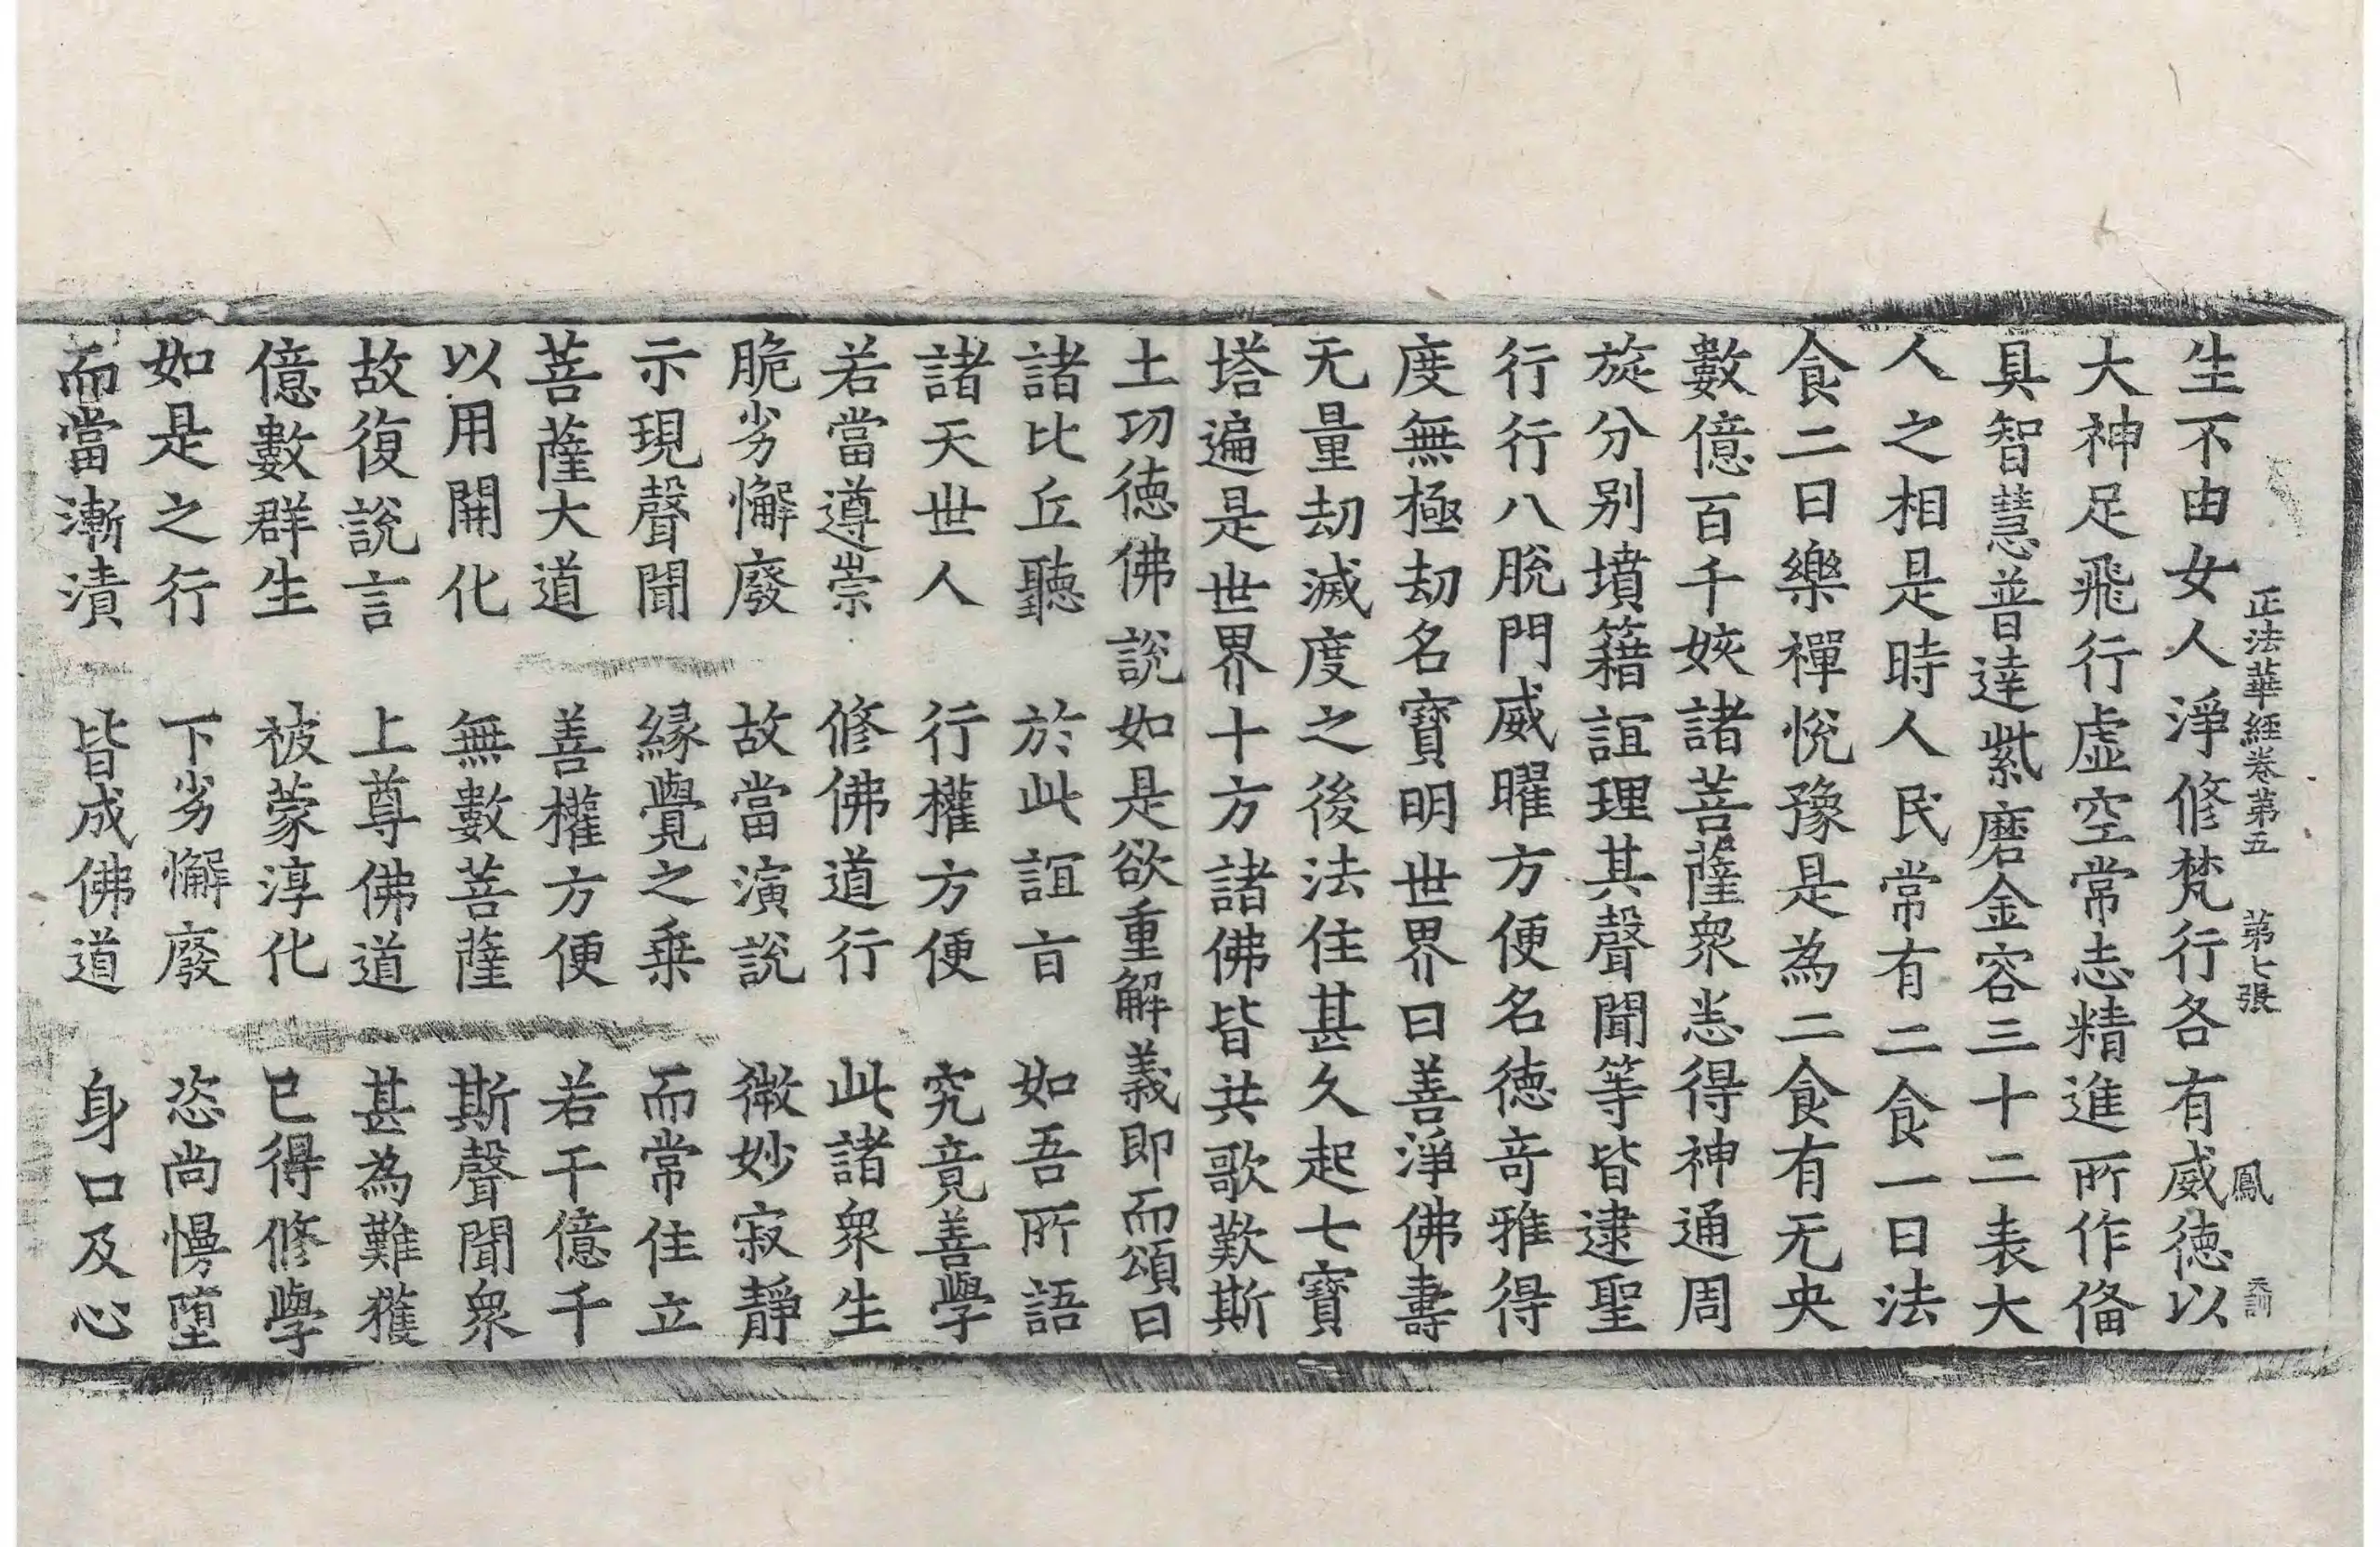 正法華經卷第五 第七張 鳳 天訓
生不由女人淨修梵行各有威德以
大神足飛行虛空常志精進所作俻
具智慧普達紫磨金容三十二表大
人之相是時人民常有二食一曰法
食二曰樂禪悅豫是為二食有无央
數億百千姟諸菩薩衆恙得神通周
旋分別墳籍誼理其聲聞等皆逮聖
行行八脫門威曜方便名德奇雅得
度無極劫名寶明世界曰善淨佛壽
无量劫滅度之後法住甚久起七寶
塔遍是世界十方諸佛皆共歌歎斯
土功德佛說如是欲重解義即而頌曰
諸比丘聽 於此誼㫖 如吾所語
諸天世人 行權方便 究竟善學
若當遵崇 修佛道行 此諸衆生
脆劣懈廢 故當演說 微妙寂靜
示現聲聞 緣覺之乘 而常住立
菩薩大道 善權方便 若干億千
以用開化 無數菩薩 斯聲聞衆
故復說言 上尊佛道 甚為難獲
億數群生 被蒙淳化 已得修學
如是之行 下劣懈廢 恣尚慢墮
而當漸漬 皆成佛道 身口及心